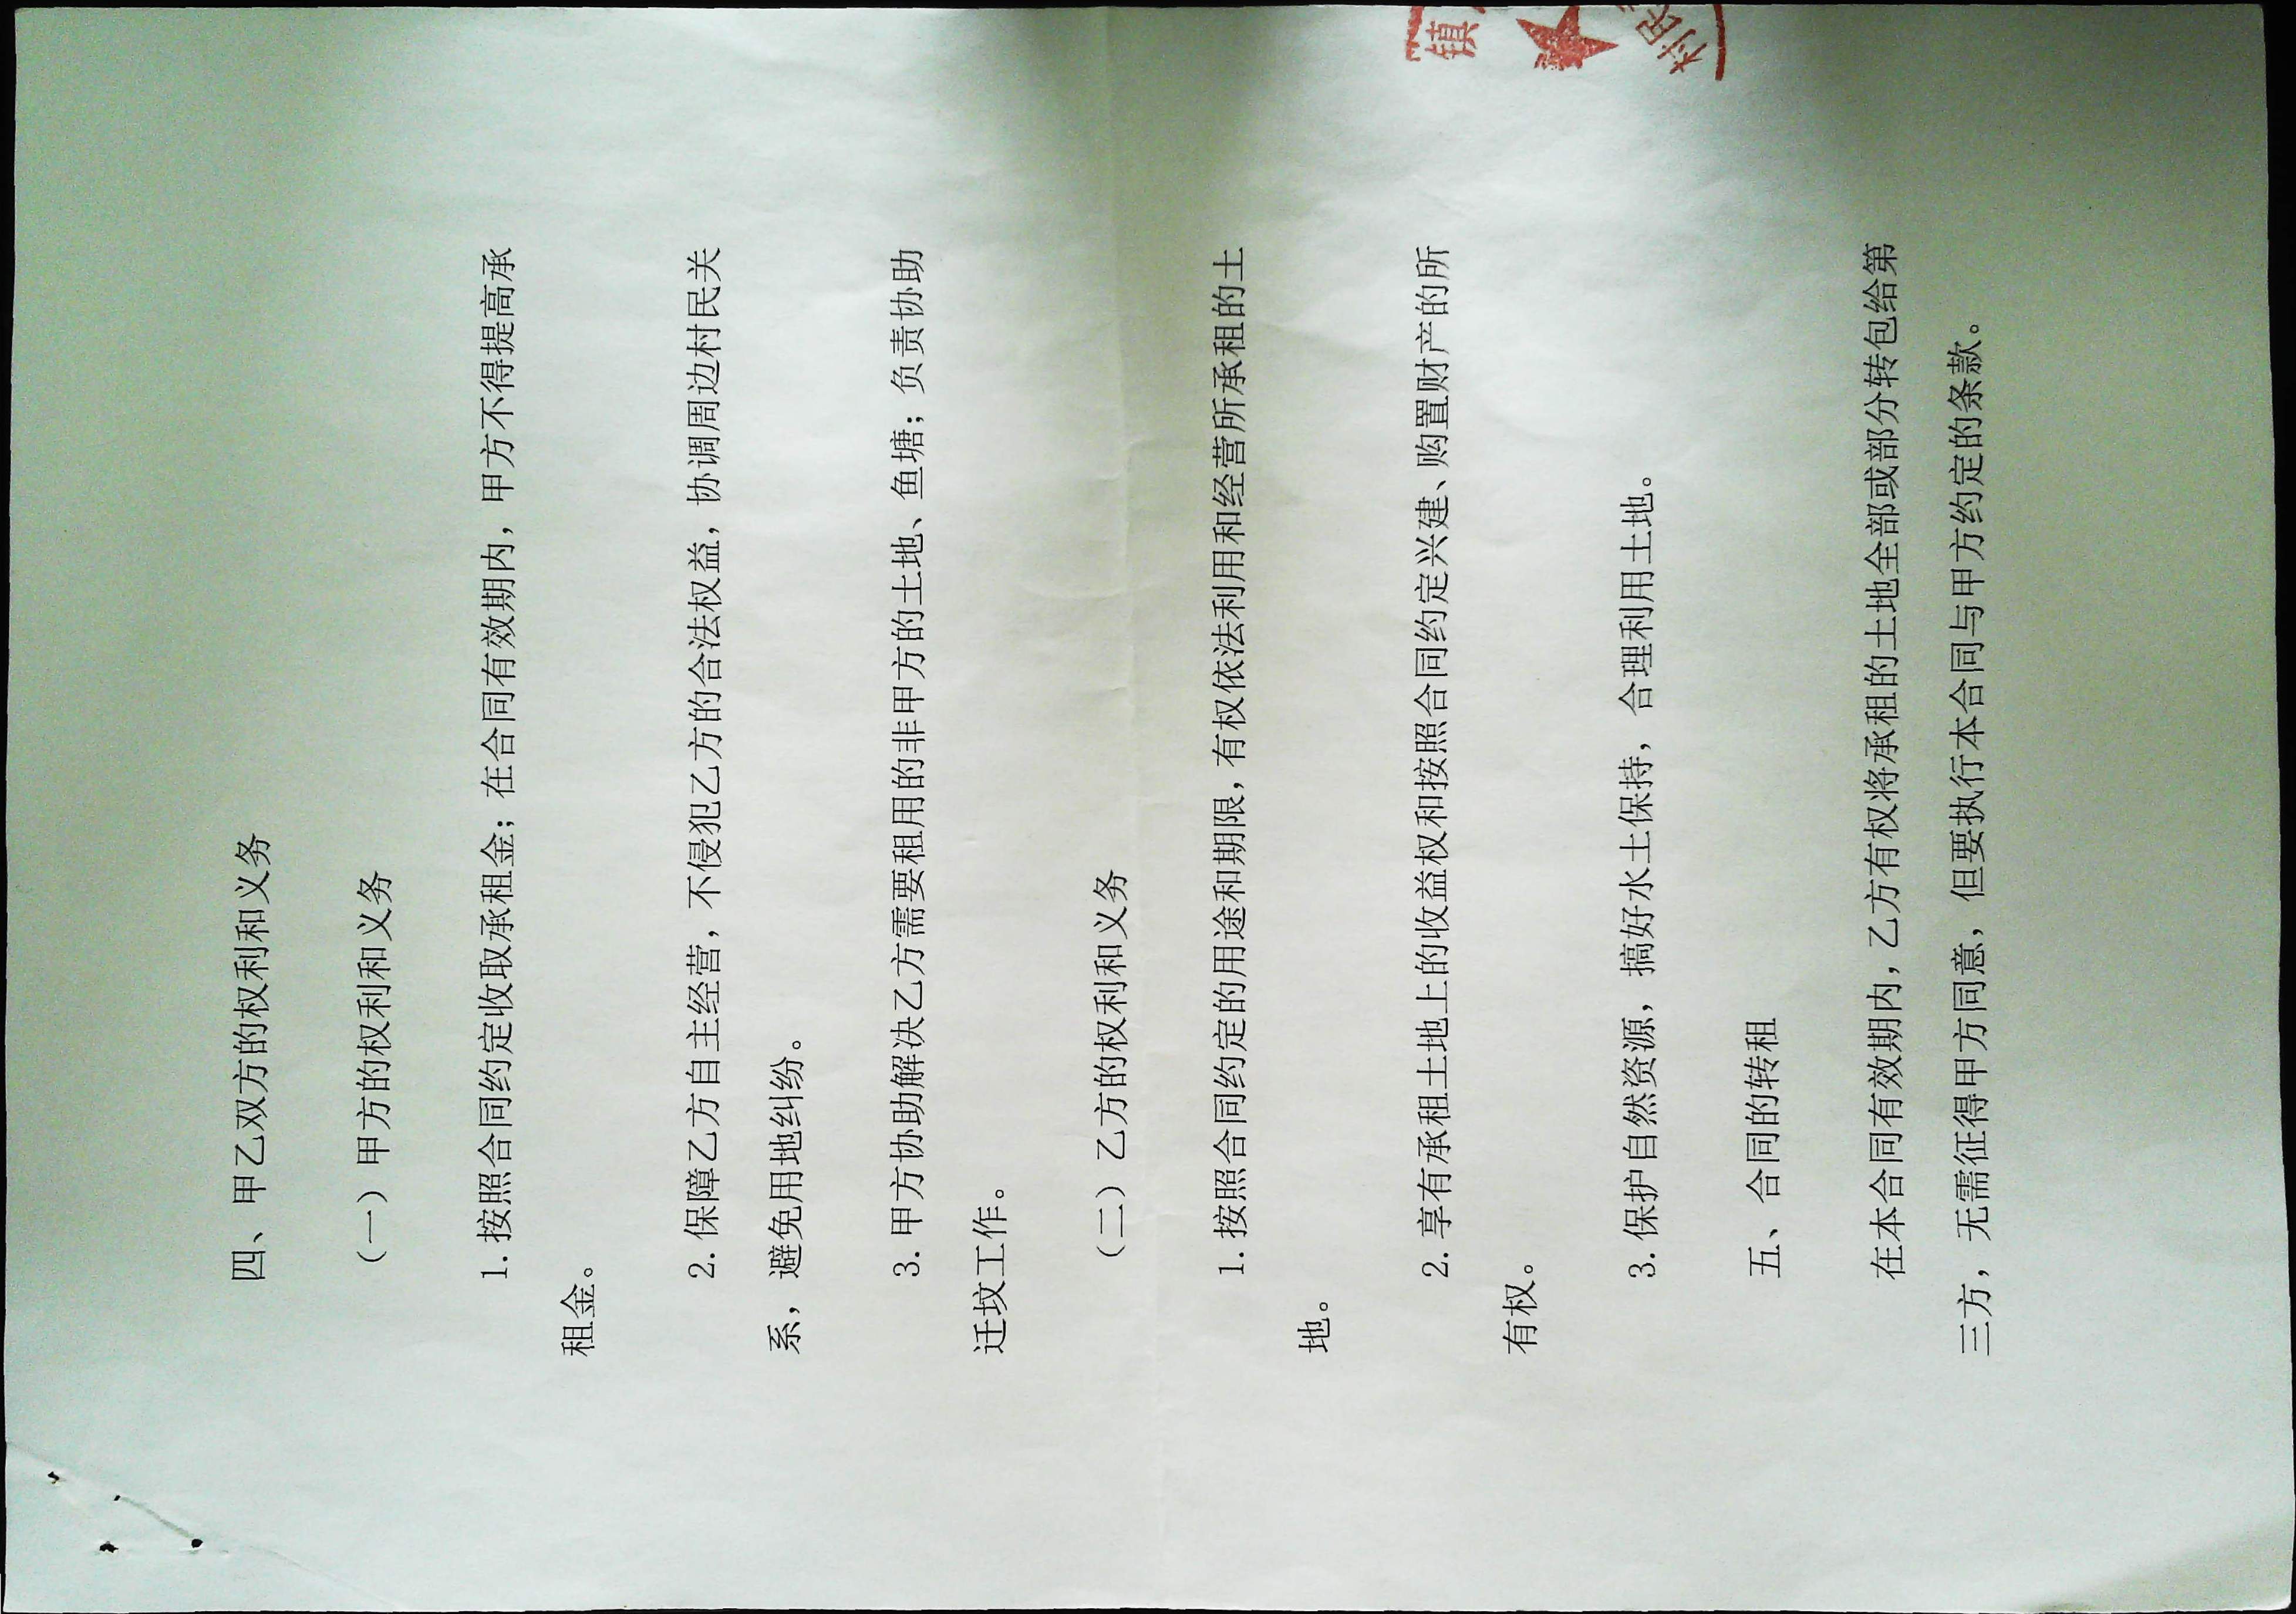 四、甲乙双方的权利和义务
（一）甲方的权利和义务
1.按照合同约定收取承租金；在合同有效期内，甲方不得提高承
租金。
2.保障乙方自主经营，不侵犯乙方的合法权益，协调周边村民关
系，避免用地纠纷。
3.甲方协助解决乙方需要租用的非甲方的土地、鱼塘；负责协助
迁坟工作。
（二）乙方的权利和义务
1.按照合同约定的用途和期限，有权依法利用和经营所承租的土
地。
2.享有承租土地上的收益权和按照合同约定兴建、购置财产的所
有权。
3.保护自然资源，搞好水土保持，合理利用土地。
五、合同的转租
在本合同有效期内，乙方有权将承租的土地全部或部分转包给第
三方，无需征得甲方同意，但要执行本合同与甲方约定的条款。
镇
村民